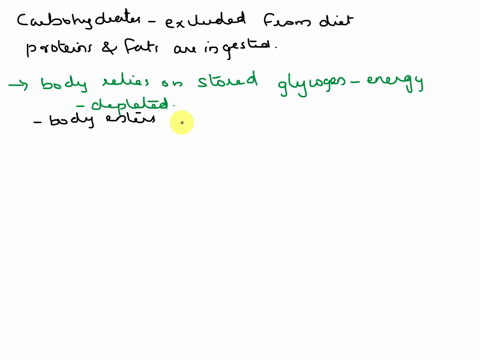 Carbohydrates - excluded from diet
proteins & fats are ingested.
→ body relies on stored glycogen - energy
- depleted.
- body enters